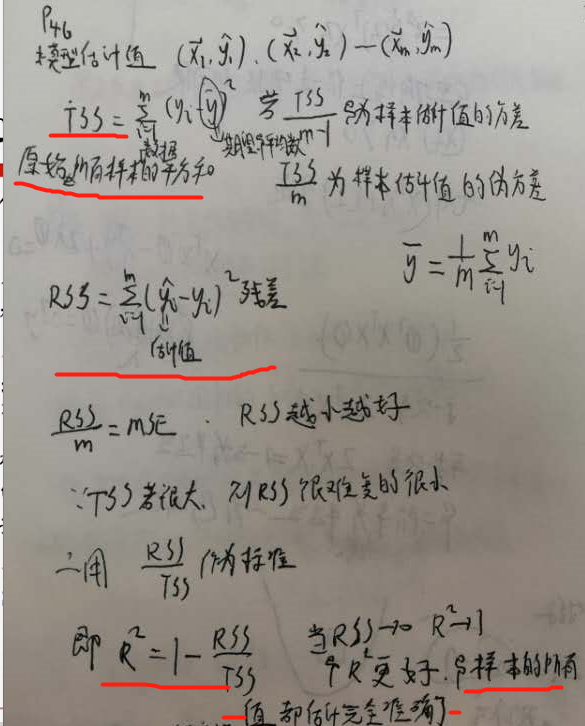 P46
模型估计值 (x₁, ŷ₁), (x₂, ŷ₂) — (xₘ, ŷₘ)
TSS = Σᵢ₌₁ᵐ (yᵢ - ȳ)² 若 TSS/(m-1) 即为样本估计值的方差
数据 平均数
原始 所有样本的平方和
TSS/m 为样本估计值的伪方差
ȳ = 1/m Σᵢ₌₁ᵐ yᵢ
RSS = Σᵢ₌₁ᵐ (ŷᵢ - yᵢ)² 残差
估计值
RSS/m = MSE RSS越小越好
∵TSS若很大, 则RSS很难变的很小
∴用 RSS/TSS 作为标准
即 R² = 1 - RSS/TSS 当RSS→0 R²→1
R²更好. 即样本的所有
值都估计完全准确了